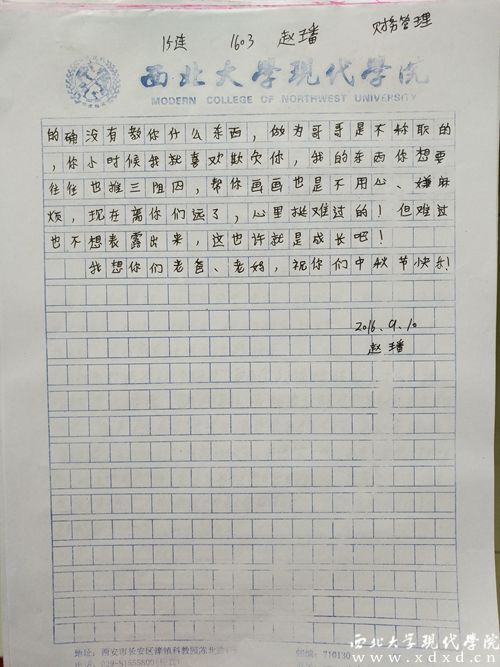 15连 1603 赵璠 财务管理
西北大学现代学院
MODERN COLLEGE OF NORTHWEST UNIVERSITY
的确没有教你什么东西，做为哥哥是不称职的
，你小时候我就喜欢欺负你，我的东西你想要
往往也推三阻四，帮你画画也是不用心、嫌麻
烦，现在离你们远了，心里挺难过的！但难过
也不想表露出来，这也许就是成长吧！
我想你们老爸、老妈，祝你们中秋节快乐！
2016.9.10
赵璠
地址：西安市长安区滦镇科教园陈北路
邮编：710130
电话：029-81555800
西北大学现代学院
www.xdxd.cn